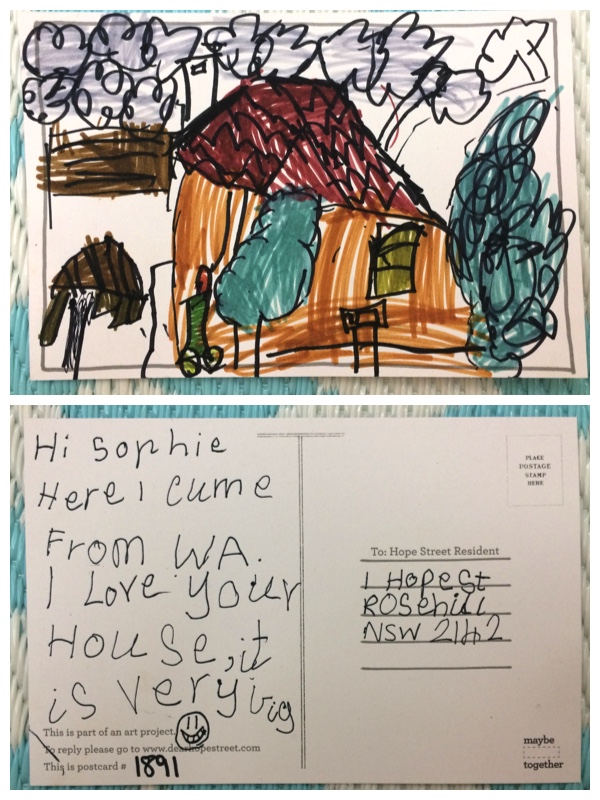 Hi Sophie
Here I cume
From WA.
I Love your
House, it
is very big
This is part of an art project.
To reply please go to www.dearhopestreet.com
This is postcard # 1891
PLACE
POSTAGE
STAMP
HERE
To: Hope Street Resident
1 Hope St
ROSehill
NSW 2142
maybe
together